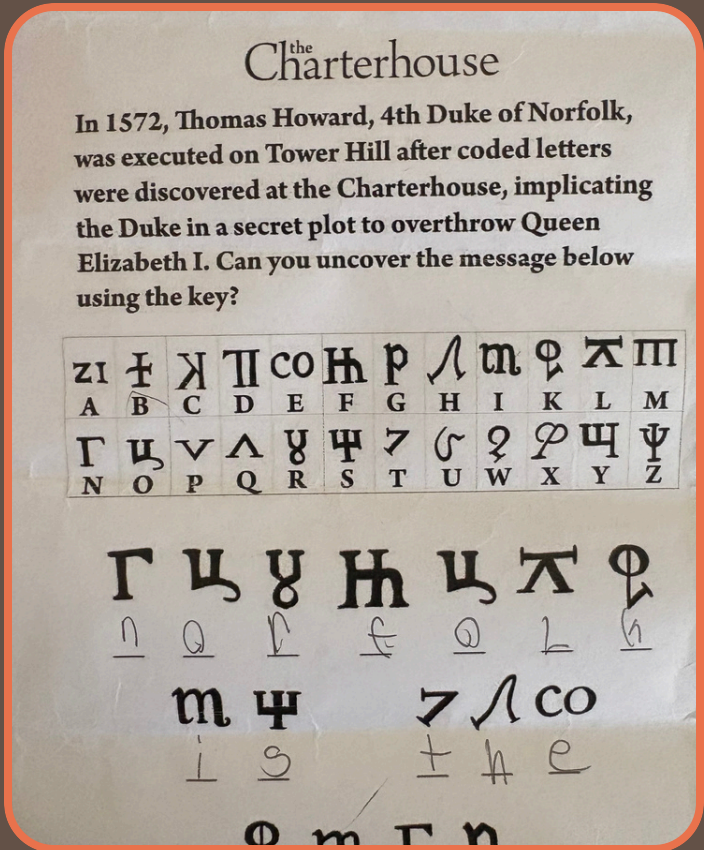 the
Charterhouse
In 1572, Thomas Howard, 4th Duke of Norfolk,
was executed on Tower Hill after coded letters
were discovered at the Charterhouse, implicating
the Duke in a secret plot to overthrow Queen
Elizabeth I. Can you uncover the message below
using the key?
A B C D E F G H I K L M
N O P Q R S T U W X Y Z
n o r f o l k
i s t h e